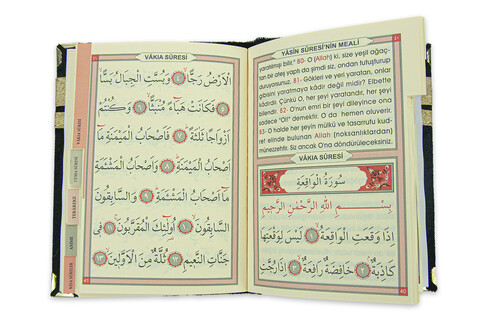 YÂSİN SÛRESİ'NİN MEALİ
yaratılmışı bilir." 80- O (Allah) ki, size yeşil ağaç-
tan bir ateş yaptı da şimdi siz, ondan tutuşturup
duruyorsunuz. 81- Gökleri ve yeri yaratan, onlar
gibisini yaratmaya kâdir değil midir? Elbette
kâdirdir. Çünkü O, her şeyi yaratandır, her şeyi
bilendir. 82- O'nun emri bir şeyi dileyince ona
sadece "Ol!" demektir. O da hemen oluverir.
83- O halde her şeyin mülkü ve tasarrufu kud-
reti elinde bulunan Allah (noksanlıklardan)
münezzehtir. Siz ancak O'na döndürüleceksiniz.
VÂKIA SÛRESİ
سُورَةُ الْوَاقِعَةِ
بِسْمِ اللّٰهِ الرَّحْمٰنِ الرَّحِيمِ
اِذَا وَقَعَتِ الْوَاقِعَةُ ١ لَيْسَ لِوَقْعَتِهَا
كَاذِبَةٌ ٢ خَافِضَةٌ رَافِعَةٌ ٣ اِذَا رُجَّتِ
40
VÂKIA SÛRESİ
الْاَرْضُ رَجًّا ٤ وَبُسَّتِ الْجِبَالُ بَسًّا
٥ فَكَانَتْ هَبَاءً مُنْبَثًّا ٦ وَكُنْتُمْ
اَزْوَاجًا ثَلٰثَةً ٧ فَاَصْحَابُ الْمَيْمَنَةِ مَا
اَصْحَابُ الْمَيْمَنَةِ ٨ وَاَصْحَابُ الْمَشْئَمَةِ
مَا اَصْحَابُ الْمَشْئَمَةِ ٩ وَالسَّابِقُونَ
السَّابِقُونَ ١٠ اُولٰئِكَ الْمُقَرَّبُونَ ١١ فِى
جَنَّاتِ النَّعِيمِ ١٢ ثُلَّةٌ مِنَ الْاَوَّلِينَ ١٣
TEBAREKE
AMME